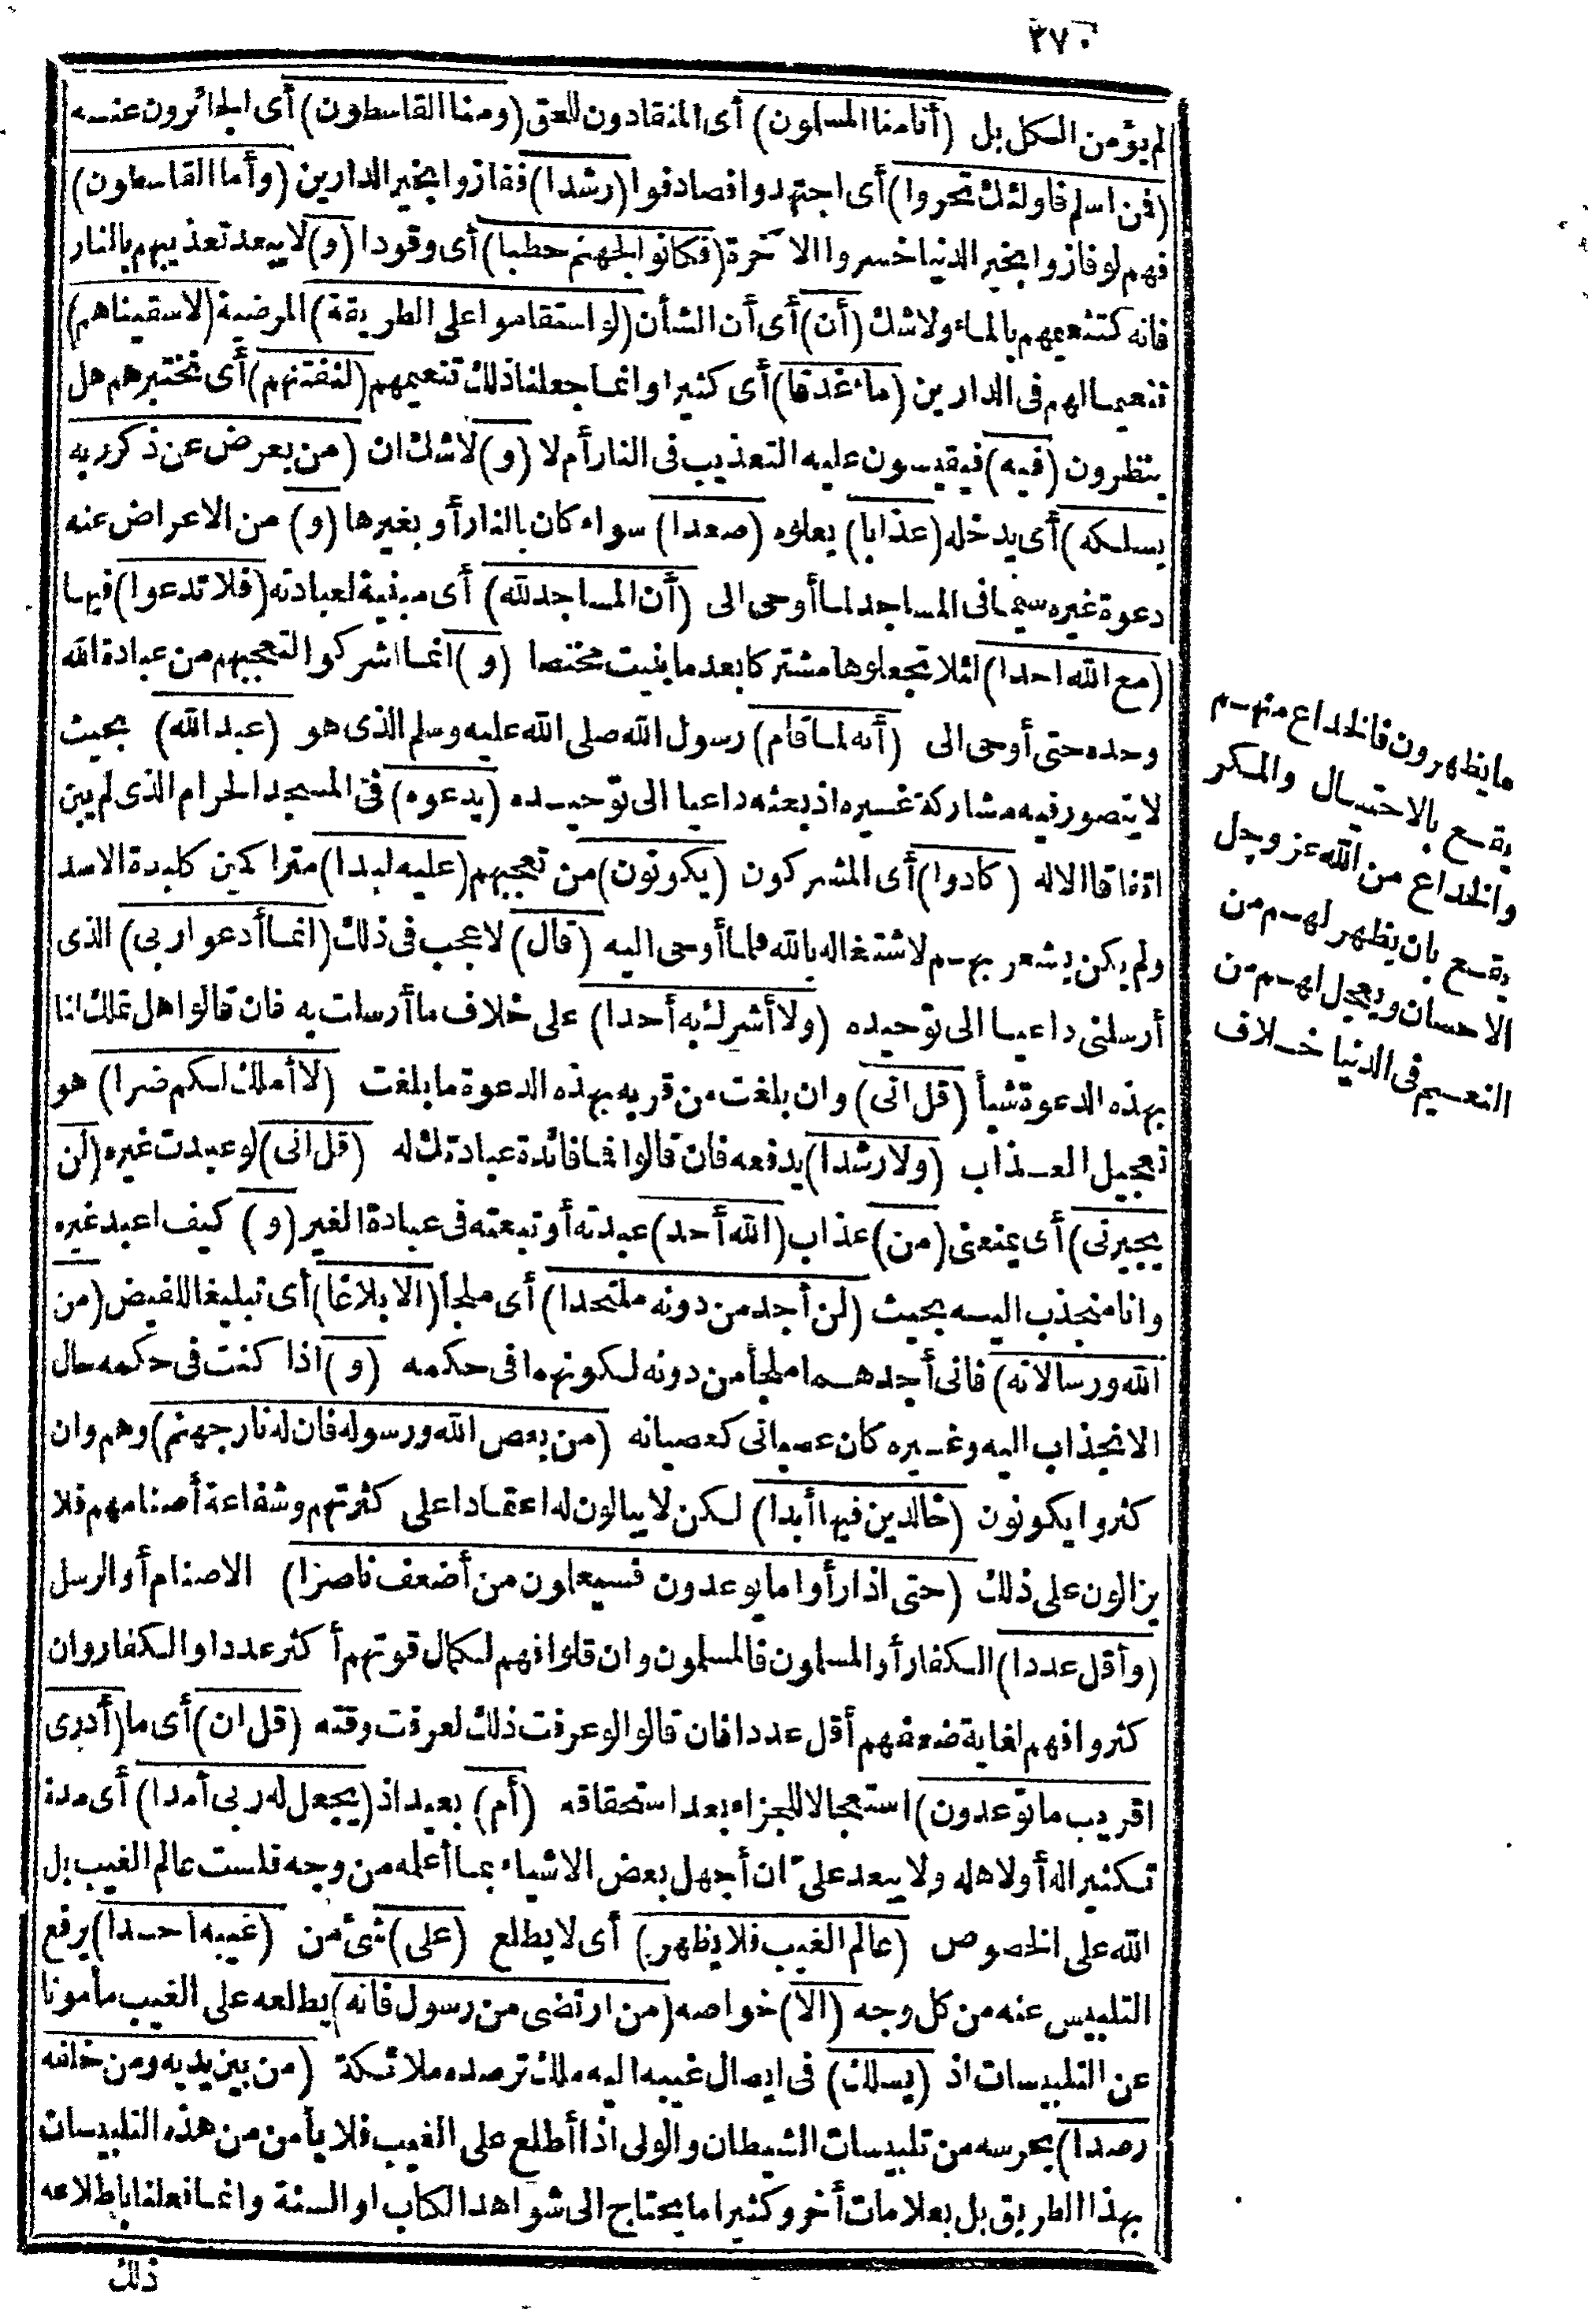 ٣٧٠
لم يؤمن الكل بل (أنا منا المسلمون) أى المنقادون للحق (ومنا القاسطون) أى الجائرون عنه
(فمن اسلم فاولئك تحروا) أى اجتهدوا فصادفوا (رشدا) ففازوا بخير الدارين (وأما القاسطون)
فهم لو فازوا بخير الدنيا خسروا الآخرة (فكانوا لجهنم حطبا) أى وقودا (و) لا يبعد تعذيبهم بالنار
فانه كتنعيمهم بالماء ولا شك (أن) أى أن الشأن (لو استقاموا على الطريقة) المرضية (لاسقيناهم)
تنعيما لهم فى الدارين (ماء غدقا) أى كثيرا وانما جعلنا ذلك تنعيمهم (لنفتنهم) أى نختبرهم هل
ينظرون (فيه) فيقيسون عليه التعذيب فى النار أم لا (و) لا شك ان (من يعرض عن ذكر ربه
يسلكه) أى يدخله (عذابا) يعلوه (صعدا) سواء كان بالنار أو بغيرها (و) من الاعراض عنه
دعوة غيره سيما فى المساجد لما أوحى الى (أن المساجد لله) أى مبنية لعبادته (فلا تدعوا) فيها
(مع الله احدا) لئلا تجعلوها مشتركا بعد ما بنيت مختصا (و) انما اشركوا لتعجبهم من عبادة الله
وحده حتى أوحى الى (أنه لما قام) رسول الله صلى الله عليه وسلم الذى هو (عبد الله) بحيث
لا يتصور فيه مشاركة غيره اذ بعثه داعيا الى توحيده (يدعوه) فى المسجد الحرام الذى لم يبن
اتفاقا الا له (كادوا) أى المشركون (يكونون) من تعجبهم (عليه لبدا) متراكمين كلبدة الاسد
ولم يكن يشعر بهم لاشتغاله بالله فلما أوحى اليه (قال) لا عجب فى ذلك (انما أدعوا ربى) الذى
أرسلنى داعيا الى توحيده (ولا أشرك به أحدا) على خلاف ما أرسلت به فان قالوا هل تملك لنا
بهذه الدعوة شيأ (قل انى) وان بلغت من قربه بهذه الدعوة ما بلغت (لا أملك لكم ضرا) هو
تعجيل العذاب (ولا رشدا) يدفعه فان قالوا فما فائدة عبادتك له (قل انى) لو عبدت غيره (لن
يجيرنى) أى يمنعنى (من) عذاب (الله أحد) عبدته أو تبعته فى عبادة الغير (و) كيف اعبد غيره
وانا منجذب اليه بحيث (لن أجد من دونه ملتحدا) أى ملجأ (الا بلاغا) أى تبليغا للفيض (من
الله ورسالاته) فانى أجدهما ملجأ من دونه لكونهما فى حكمه (و) اذا كنت فى حكمه حال
الانجذاب اليه وغيره كان عصيانى كعصيانه (من يعص الله ورسوله فان له نار جهنم) وهم وان
كثروا يكونون (خالدين فيها أبدا) لكن لا يبالون له اعتمادا على كثرتهم وشفاعة أصنامهم فلا
يزالون على ذلك (حتى اذا رأوا ما يوعدون فسيعلون من أضعف ناصرا) الاصنام أو الرسل
(وأقل عددا) الكفار أو المسلمون فالمسلمون وان قلوا فهم لكمال قوتهم أكثر عددا والكفار وان
كثروا فهم لغاية ضعفهم أقل عددا فان قالوا لو عرفت ذلك لعرفت وقته (قل ان) أى ما (أدرى
اقريب ما توعدون) استعجالا للجزاء بعد استحقاقه (أم) بعيد اذ (يجعل له ربى أمدا) أى مدة
تكثيرا له أو لاهله ولا يبعد علىّ ان أجهل بعض الاشياء بما أعلمه من وجه فلست عالم الغيب بل
الله على الخصوص (عالم الغيب فلا يظهر) أى لا يطلع (على) شئ من (غيبه احدا) يرفع
التلبيس عنه من كل وجه (الا) خواصه (من ارتضى من رسول فانه) يطلعه على الغيب مأمونا
عن التلبيسات اذ (يسلك) فى ايصال غيبه اليه ملك ترصده ملائكة (من بين يديه ومن خلفه
رصدا) يحرسه من تلبيسات الشيطان والولى اذا أطلع على الغيب فلا يأمن من هذه التلبيسات
بهذا الطريق بل بعلامات أخر وكثيرا ما يحتاج الى شواهد الكتاب او السنة وانما فعلنا باطلاعه
ذلك
ما يظهرون فالخداع منهم
يقع بالاحتيال والمكر
والخداع من الله عز وجل
يقع بان يظهر لهم من
الاحسان ويعجل لهم من
النعيم فى الدنيا خلاف